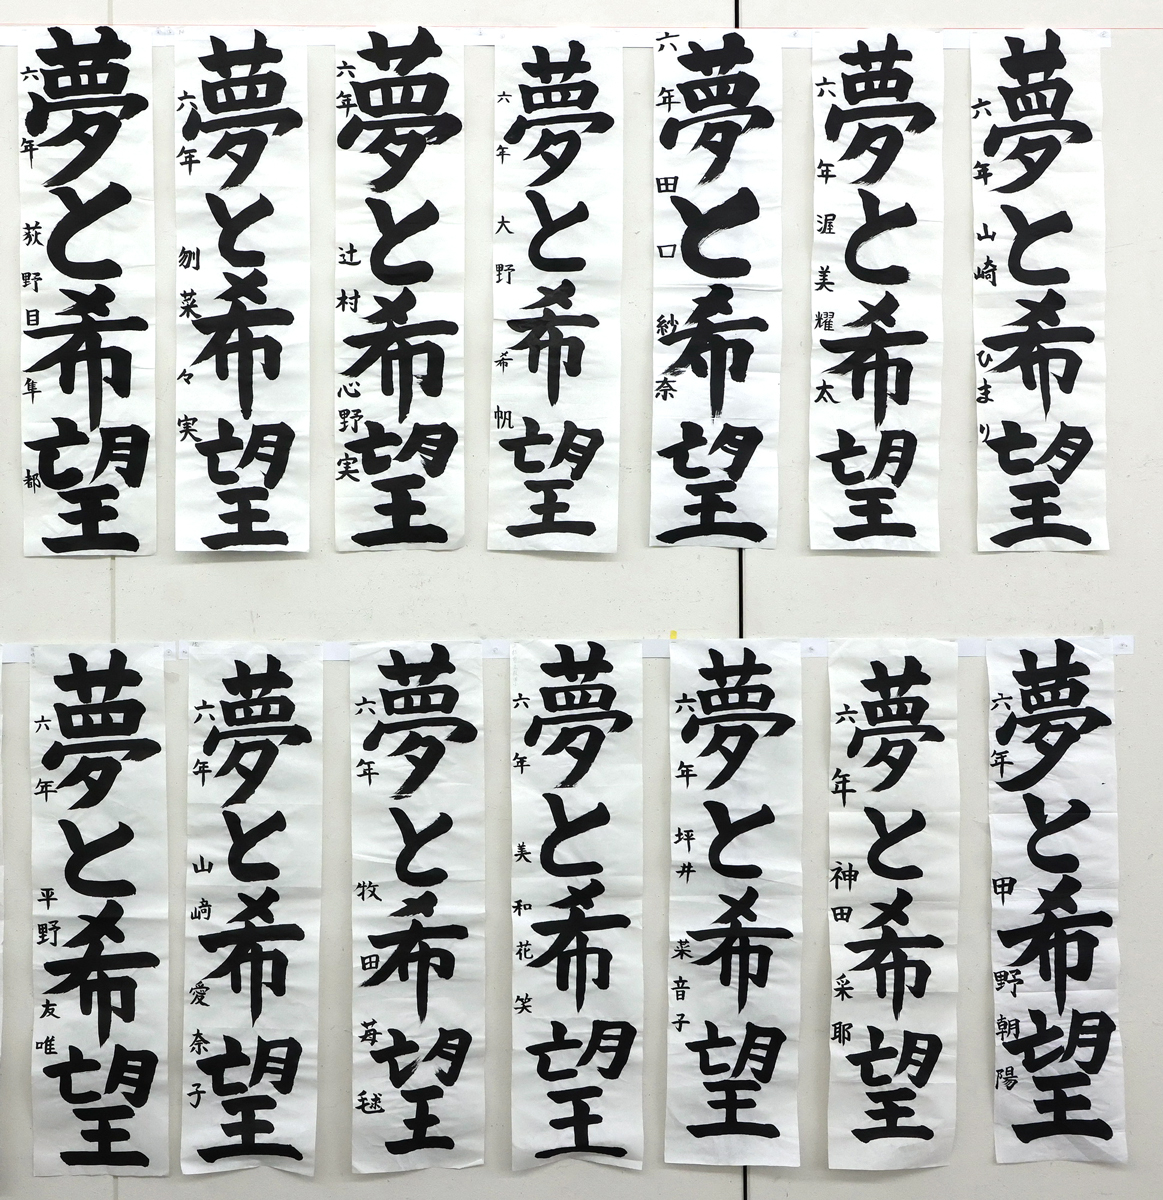 夢と希望
六年 山崎ひまり
夢と希望
六年 渥美耀太
夢と希望
六年 田口紗奈
夢と希望
六年 大野希帆
夢と希望
六年 辻村心野実
夢と希望
六年 刎菜々実
夢と希望
六年 荻野目隼都
夢と希望
六年 甲野朝陽
夢と希望
六年 神田采耶
夢と希望
六年 坪井菜音子
夢と希望
六年 美和花笑
夢と希望
六年 牧田苺毬
夢と希望
六年 山﨑愛奈子
夢と希望
六年 平野友唯